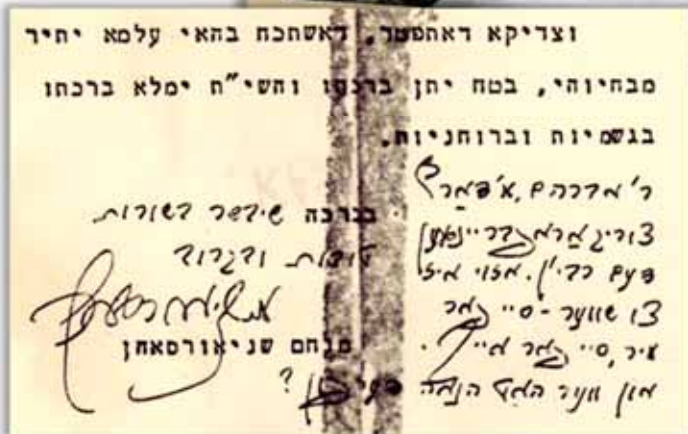 וצדיקא דאתפטר, דאשתכח בהאי עלמא יתיר
מבחיוהי, בטח יתן ברכתו והשי"ת ימלא ברכתו
בגשמיות וברוחניות.
בברכה שיבשר בשורות
טובות ובקרוב
מנחם שניאורסאהן
ר' אברהם,
דעם רבי'ן. אזוי איז
צו שווער - סיי גאר
סיי גאר אייך.
און ווער האט הנאה ?